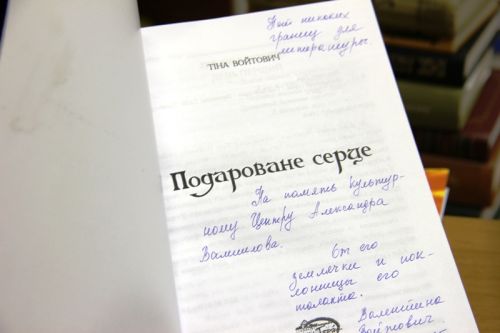 Нет никаких
границ для
литературы.
ТІНА ВОЙТОВИЧ
Подароване серце
На память культур-
ному Центру Александра
Вампилова.
От его
землячки и пок-
лонницы его
таланта.
Валентина
Войтович